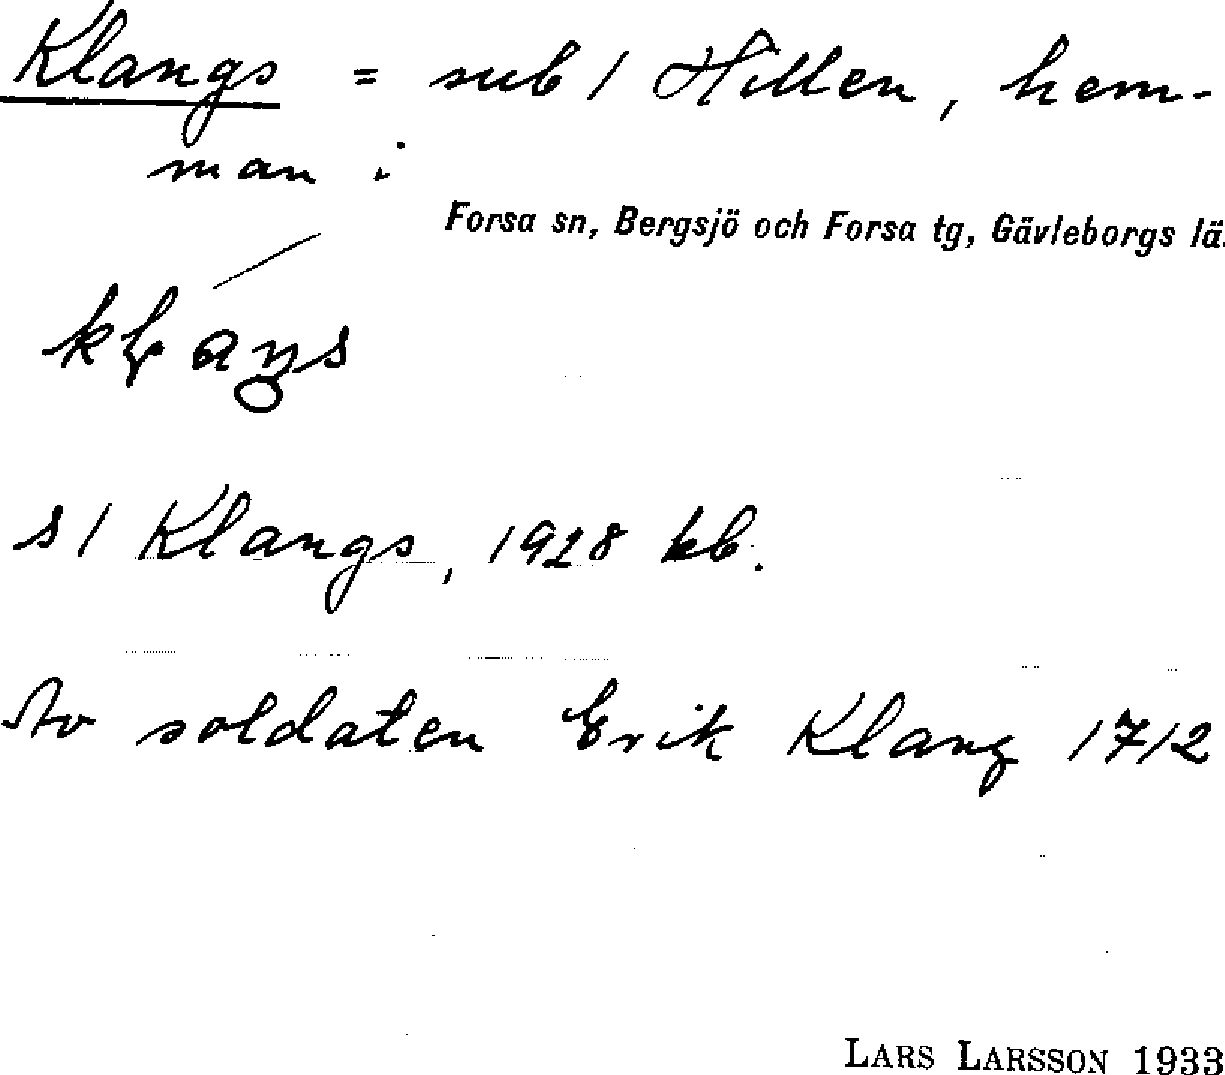 Klangs = sub 1 Hillen, hem-
man i
Forsa sn, Bergsjö och Forsa tg, Gävleborgs lä
s/ Klangs, 1928 kb.
Av soldaten Erik Klang 1712
LARS LARSSON 1933